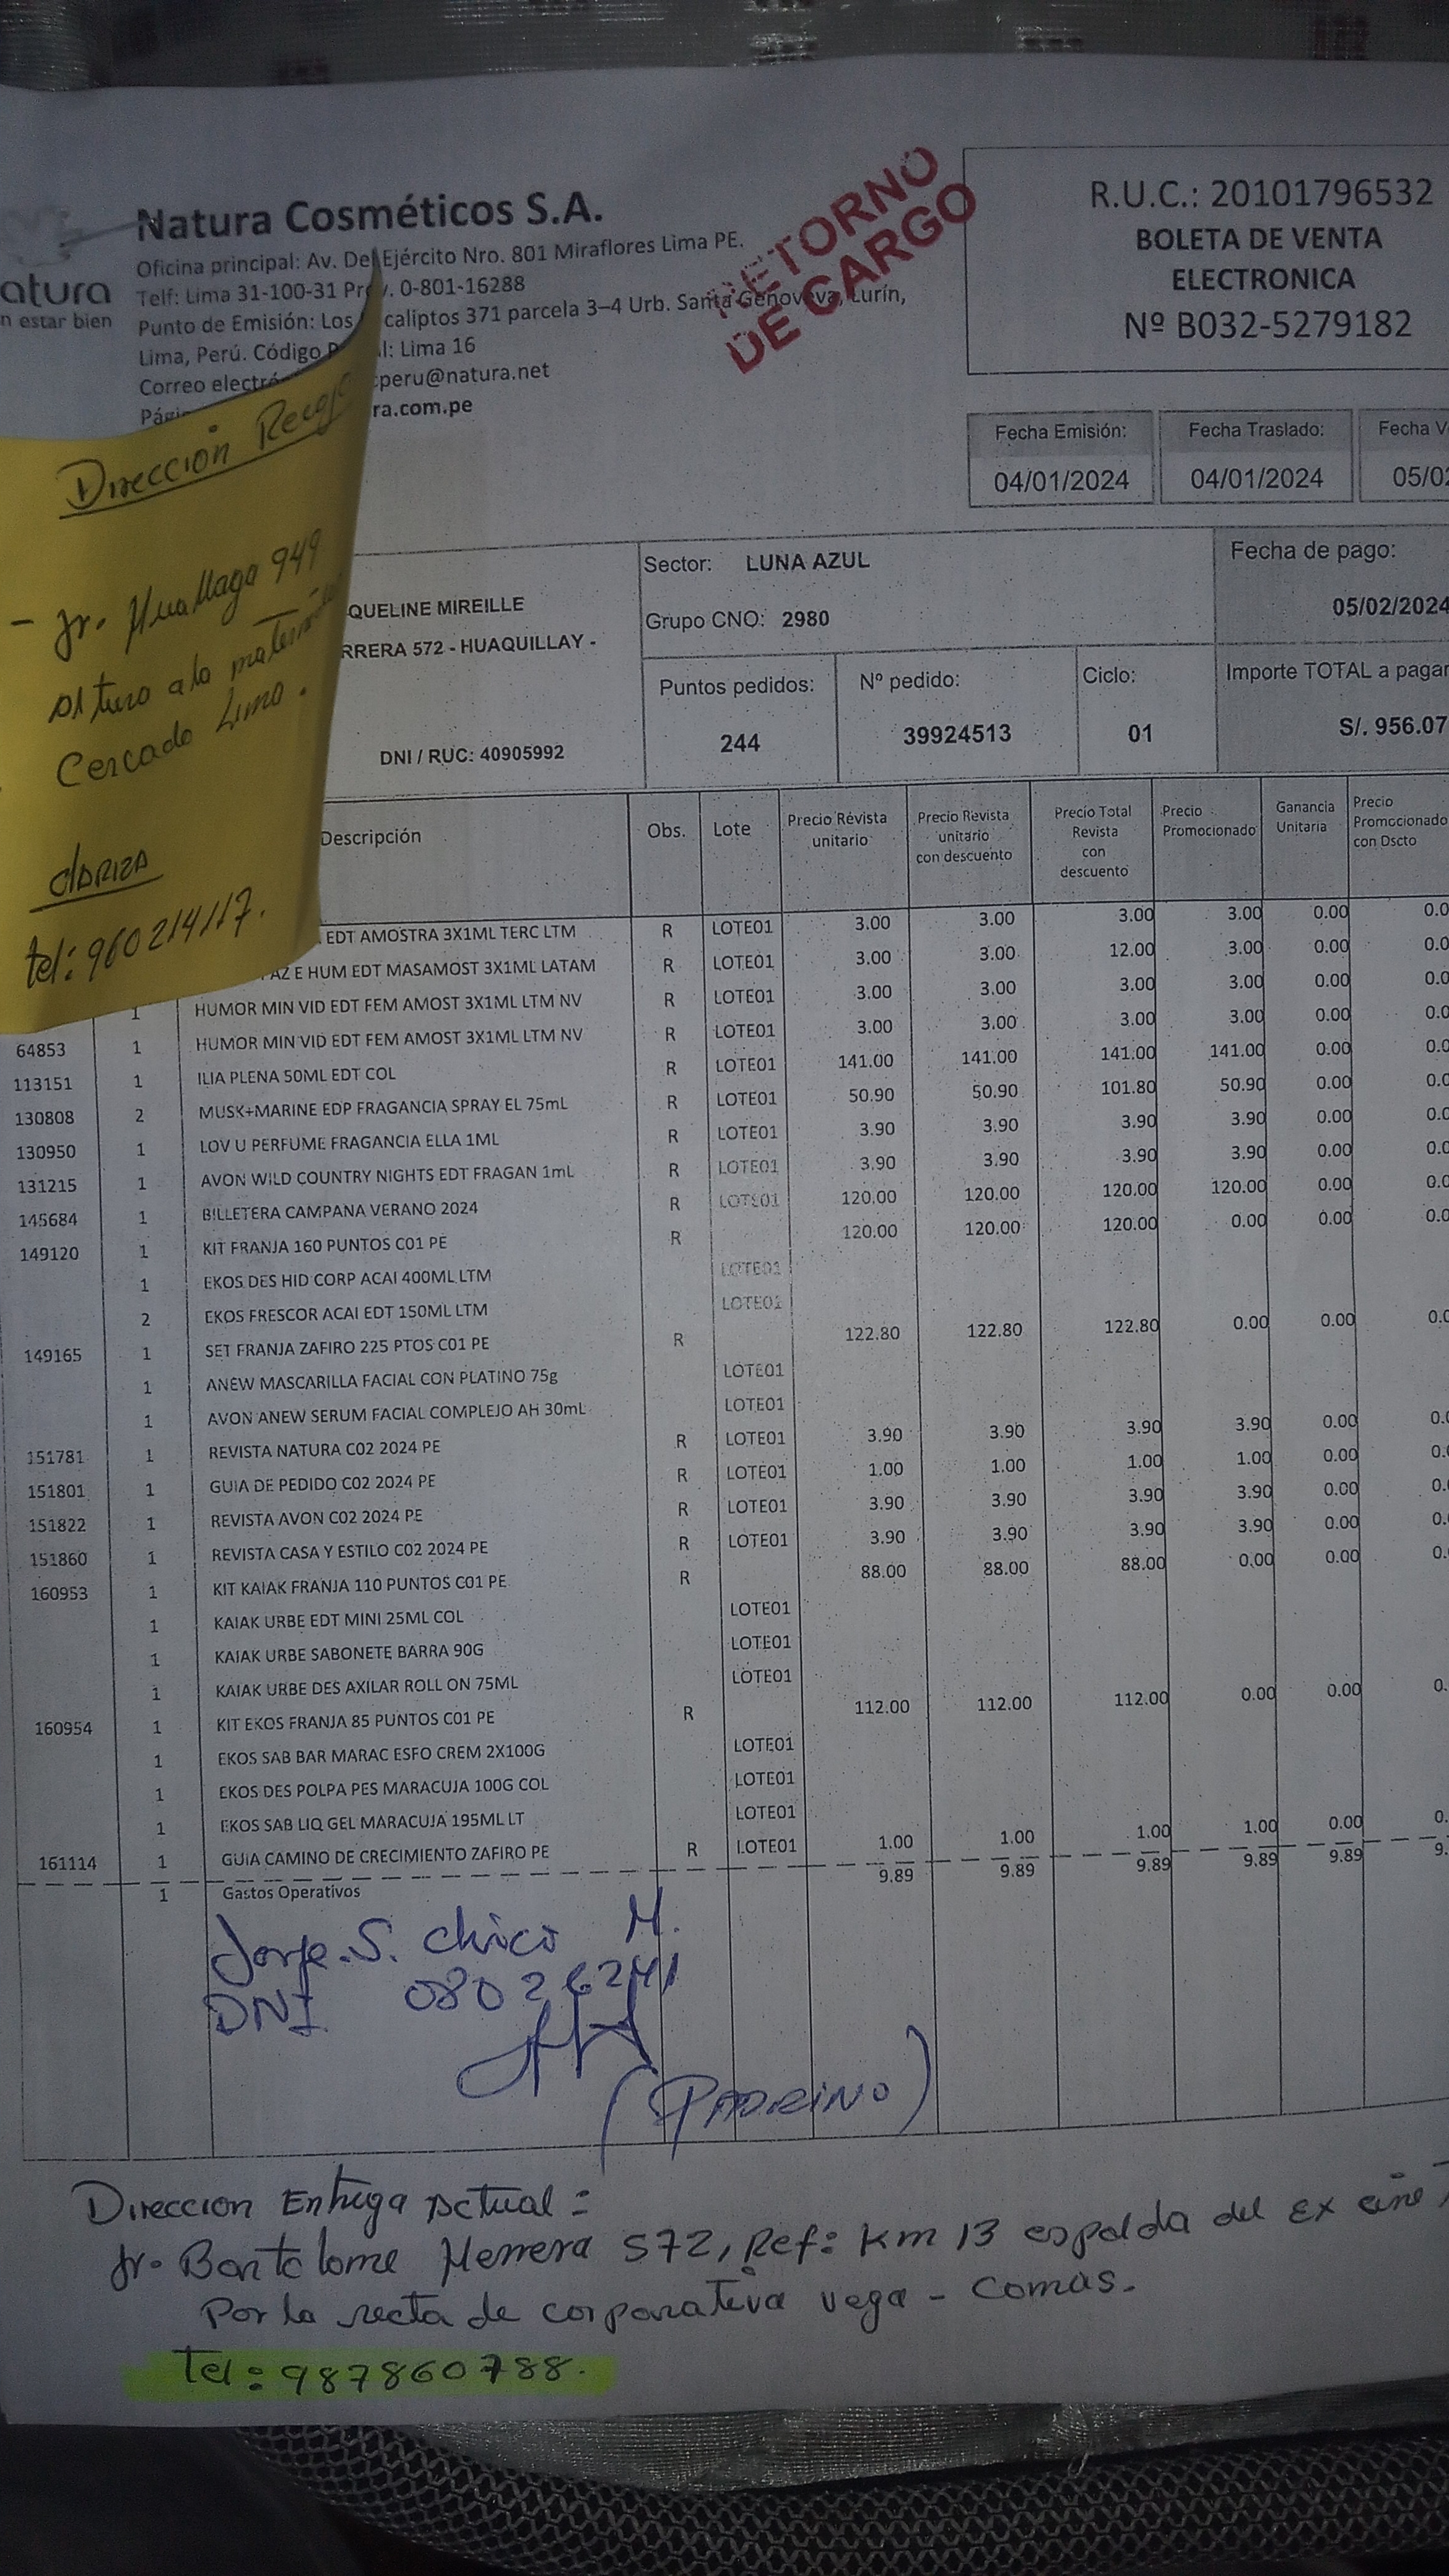 Natura Cosméticos S.A.
Oficina principal: Av. Del Ejército Nro. 801 Miraflores Lima PE.
Telf: Lima 31-100-31 Pr v. 0-801-16288
Punto de Emisión: Los caliptos 371 parcela 3–4 Urb. Santa Genoveva, Lurín,
Lima, Perú. Código P l: Lima 16
Correo electró cperu@natura.net
Pági ra.com.pe
atura
n estar bien
RETORNO
DE CARGO
R.U.C.: 20101796532
BOLETA DE VENTA
ELECTRONICA
Nº B032-5279182
Fecha Emisión: Fecha Traslado: Fecha V
04/01/2024 04/01/2024 05/02
Dirección Recojo
- Jr. Huallaga 949
Altura a la maternidad
Cercado Lima.
tel: 960214117.
QUELINE MIREILLE
RRERA 572 - HUAQUILLAY -
DNI / RUC: 40905992
Sector: LUNA AZUL
Grupo CNO: 2980
Fecha de pago:
05/02/2024
Puntos pedidos: Nº pedido: Ciclo: Importe TOTAL a pagar
244 39924513 01 S/. 956.07
Descripción Obs. Lote Precio Revista unitario Precio Revista unitario con descuento Precio Total Revista con descuento Precio Promocionado Ganancia Unitaria Precio Promocionado con Dscto
EDT AMOSTRA 3X1ML TERC LTM R LOTE01 3.00 3.00 3.00 3.00 0.00 0.0
AZ E HUM EDT MASAMOST 3X1ML LATAM R LOTE01 3.00 3.00 12.00 3.00 0.00 0.0
1 HUMOR MIN VID EDT FEM AMOST 3X1ML LTM NV R LOTE01 3.00 3.00 3.00 3.00 0.00 0.0
64853 1 HUMOR MIN VID EDT FEM AMOST 3X1ML LTM NV R LOTE01 3.00 3.00 3.00 3.00 0.00 0.0
113151 1 ILIA PLENA 50ML EDT COL R LOTE01 141.00 141.00 141.00 141.00 0.00 0.0
130808 2 MUSK+MARINE EDP FRAGANCIA SPRAY EL 75mL R LOTE01 50.90 50.90 101.80 50.90 0.00 0.0
130950 1 LOV U PERFUME FRAGANCIA ELLA 1ML R LOTE01 3.90 3.90 3.90 3.90 0.00 0.0
131215 1 AVON WILD COUNTRY NIGHTS EDT FRAGAN 1mL R LOTE01 3.90 3.90 3.90 3.90 0.00 0.0
145684 1 BILLETERA CAMPANA VERANO 2024 R LOTE01 120.00 120.00 120.00 120.00 0.00 0.0
149120 1 KIT FRANJA 160 PUNTOS C01 PE R 120.00 120.00 120.00 0.00 0.00 0.0
1 EKOS DES HID CORP ACAI 400ML LTM LOTE01
2 EKOS FRESCOR ACAI EDT 150ML LTM LOTE01
149165 1 SET FRANJA ZAFIRO 225 PTOS C01 PE R 122.80 122.80 122.80 0.00 0.00 0.0
1 ANEW MASCARILLA FACIAL CON PLATINO 75g LOTE01
1 AVON ANEW SERUM FACIAL COMPLEJO AH 30mL LOTE01
151781 1 REVISTA NATURA C02 2024 PE R LOTE01 3.90 3.90 3.90 3.90 0.00 0.
151801 1 GUIA DE PEDIDO C02 2024 PE R LOTE01 1.00 1.00 1.00 1.00 0.00 0.
151822 1 REVISTA AVON C02 2024 PE R LOTE01 3.90 3.90 3.90 3.90 0.00 0.
151860 1 REVISTA CASA Y ESTILO C02 2024 PE R LOTE01 3.90 3.90 3.90 3.90 0.00 0.
160953 1 KIT KAIAK FRANJA 110 PUNTOS C01 PE R 88.00 88.00 88.00 0.00 0.00 0.
1 KAIAK URBE EDT MINI 25ML COL LOTE01
1 KAIAK URBE SABONETE BARRA 90G LOTE01
1 KAIAK URBE DES AXILAR ROLL ON 75ML LOTE01
160954 1 KIT EKOS FRANJA 85 PUNTOS C01 PE R 112.00 112.00 112.00 0.00 0.00 0.
1 EKOS SAB BAR MARAC ESFO CREM 2X100G LOTE01
1 EKOS DES POLPA PES MARACUJA 100G COL LOTE01
1 EKOS SAB LIQ GEL MARACUJA 195ML LT LOTE01
161114 1 GUIA CAMINO DE CRECIMIENTO ZAFIRO PE R LOTE01 1.00 1.00 1.00 1.00 0.00 0.
1 Gastos Operativos 9.89 9.89 9.89 9.89 9.89 9.
Jorge. S. chico M.
DNI 08026241
(PADRINO)
Direccion Entrega Actual:
Jr. Bartolome Herrera 572, Ref: Km 13 espalda del Ex cine
Por la recta de corporativa vega - Comas.
Tel: 987860788.